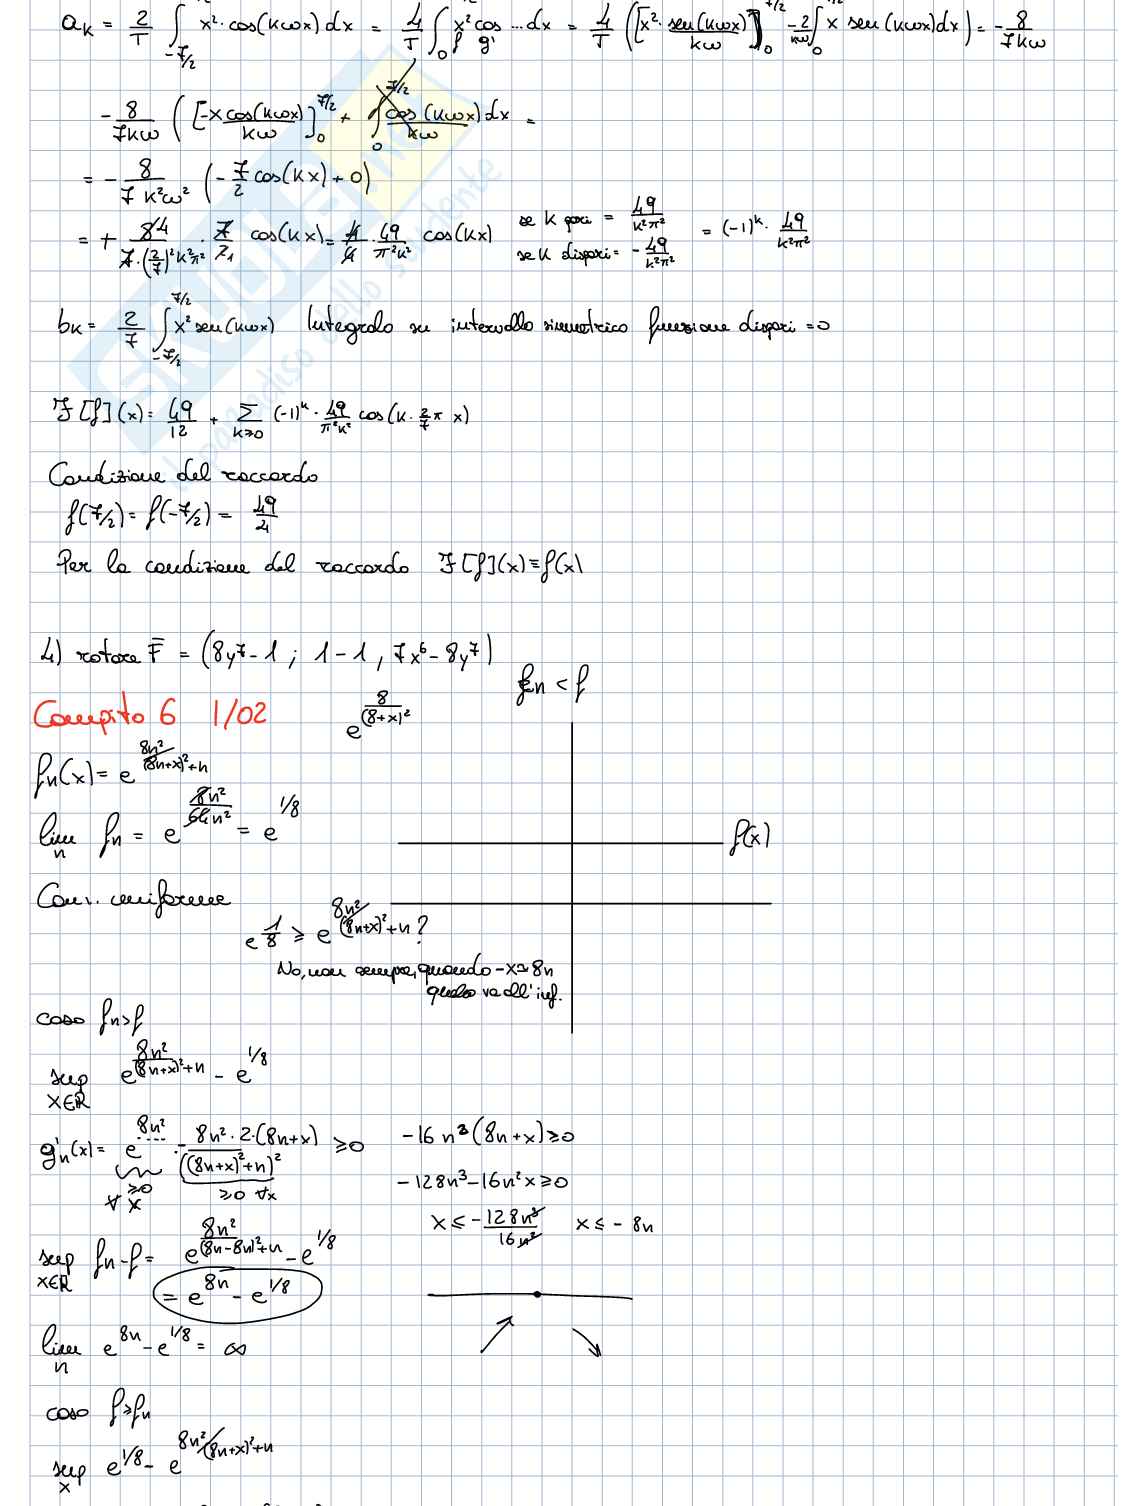 a_k = 2/T ∫_{-7/2} x²·cos(kωx) dx = 4/T ∫_0 x² cos ... dx = 4/T ([x²· sen(kωx)/kω]_0^{7/2} - 2/kω ∫_0 x sen(kωx)dx) = - 8/7kω
f g'
- 8/7kω ([-x cos(kωx)/kω]_0^{7/2} + ∫_0^{7/2} cos(kωx)/kω dx =
= - 8/7k²ω² (- 7/2 cos(kx) + 0)
= + 84/7·(2/7)²k²π² · 7/21 cos(kx) = 4/4 · 49/π²k² cos(kx) se k pari = 49/k²π² = (-1)^k · 49/k²π²
se k dispari = - 49/k²π²
b_k = 2/7 ∫_{-7/2}^{7/2} x² sen(kωx) Integrale su intervallo simmetrico funzione dispari = 0
F[f](x) = 49/12 + Σ_{k≥0} (-1)^k · 49/π²k² cos(k · 2/7 π x)
Condizione del raccordo
f(7/2) = f(-7/2) = 49/4
Per la condizione del raccordo F[f](x) ≡ f(x)
4) rotore F̄ = (8y⁷ - 1 ; 1 - 1 , 7x⁶ - 8y⁷)
fn < f
Compito 6 1/02 e^{8/(8+x)²}
fn(x) = e^{8n²/(8n+x)²+n}
lim_n fn = e^{8n²/64n²} = e^{1/8}
f(x)
Conv. uniforme
e^{1/8} ≥ e^{8n²/(8n+x)²+n} ?
No, non sempre, quando -x≃8n
quello va all'inf.
caso fn>f
sup_{x∈R} e^{8n²/(8n+x)²+n} - e^{1/8}
g'n(x) = e^{8n² ....} · - 8n²·2·(8n+x)/((8n+x)²+n)² ≥0 -16n³(8n+x)≥0
≥0 ∀x ≥0 ∀x -128n³-16n²x≥0
x ≤ - 128n³/16n² x ≤ - 8n
sup_{x∈R} fn-f = e^{8n²/(8n-8n)²+n} - e^{1/8}
= e^{8n} - e^{1/8}
lim_n e^{8n} - e^{1/8} = ∞
caso f≥fn
sup_x e^{1/8} - e^{8n²/(8n+x)²+n}